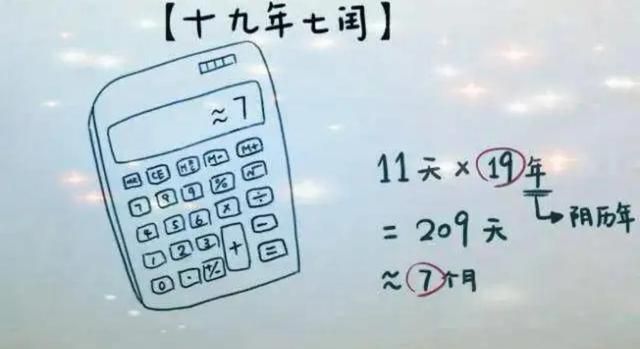 【十九年七闰】
≈7
CE M- M+
7 8 9 % √
4 5 6 × ÷
1 2 3 + −
0 · +/- =
11天×19年
→阴历年
= 209天
≈7个月